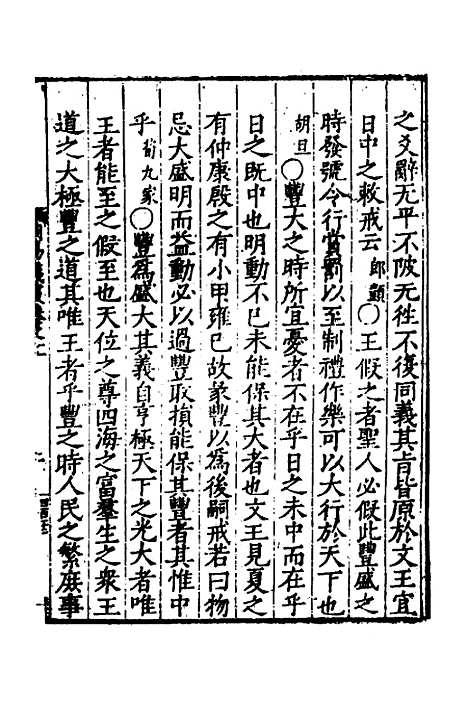 之爻辭无平不陂无往不復同義其旨皆原於文王宜
日中之敕戒云郎顗〇王假之者聖人必假此豐盛之
時發號令行賞罰以至制禮作樂可以大行於天下也
胡旦〇豐大之時所宜憂者不在乎日之未中而在乎
日之既中也明動不已未能保其大者也文王見夏之
有仲康殷之有小甲雍己故彖豐以為後嗣戒若曰物
忌大盛明而益動必以過豐取損能保其豐者其惟中
乎荀九家〇豐為盛大其義自亨極天下之光大者唯
王者能至之假至也天位之尊四海之富羣生之衆王
道之大極豐之道其唯王者乎豐之時人民之繁庶事